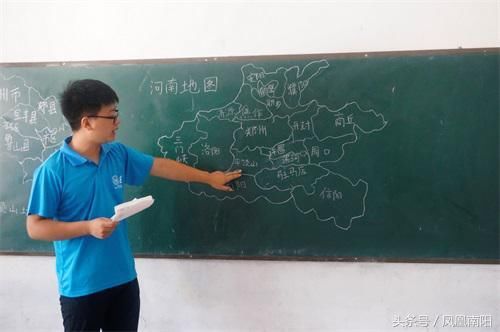 州市
郏县
宝丰县
鲁山县
河南地图
安阳
鹤壁
濮阳
新乡
济源
焦作
三门峡
洛阳
郑州
开封
商丘
许昌
漯河
周口
平顶山
阳
驻马店
信阳
头条号/凤凰南阳